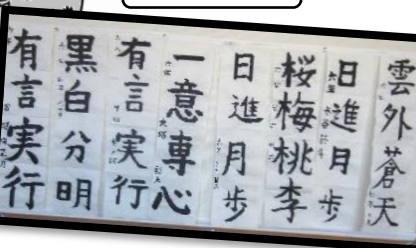 雲外蒼天
日進月歩
桜梅桃李
日進月歩
一意専心
有言実行
黒白分明
有言実行